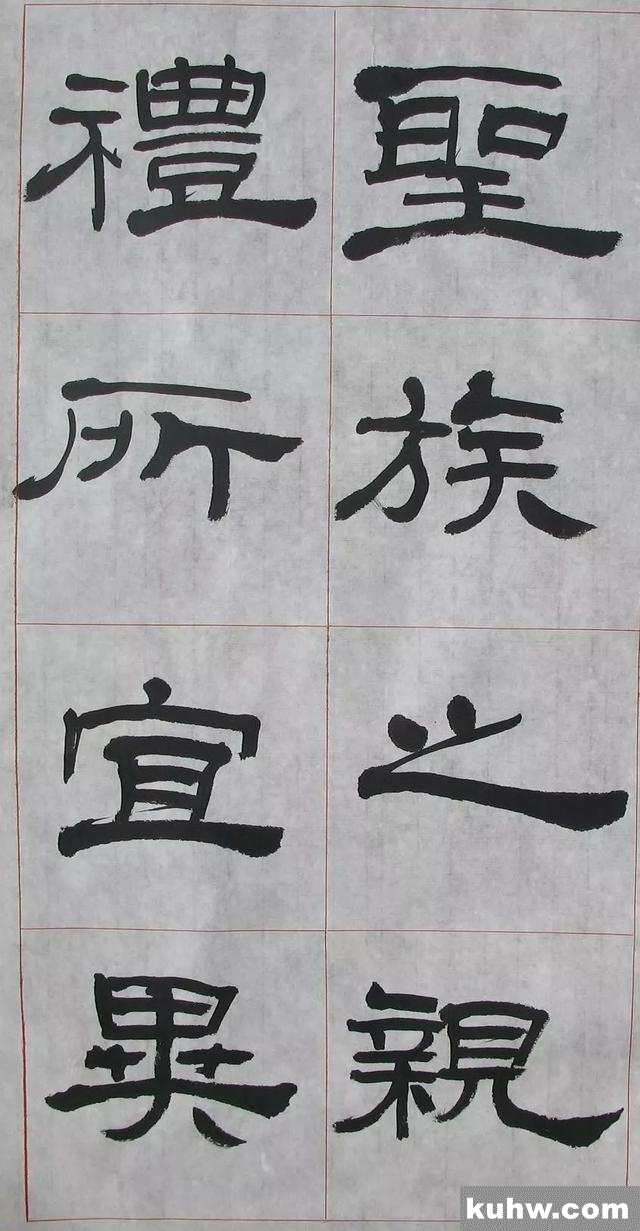 聖族之親
禮所宜異
kuhw.com